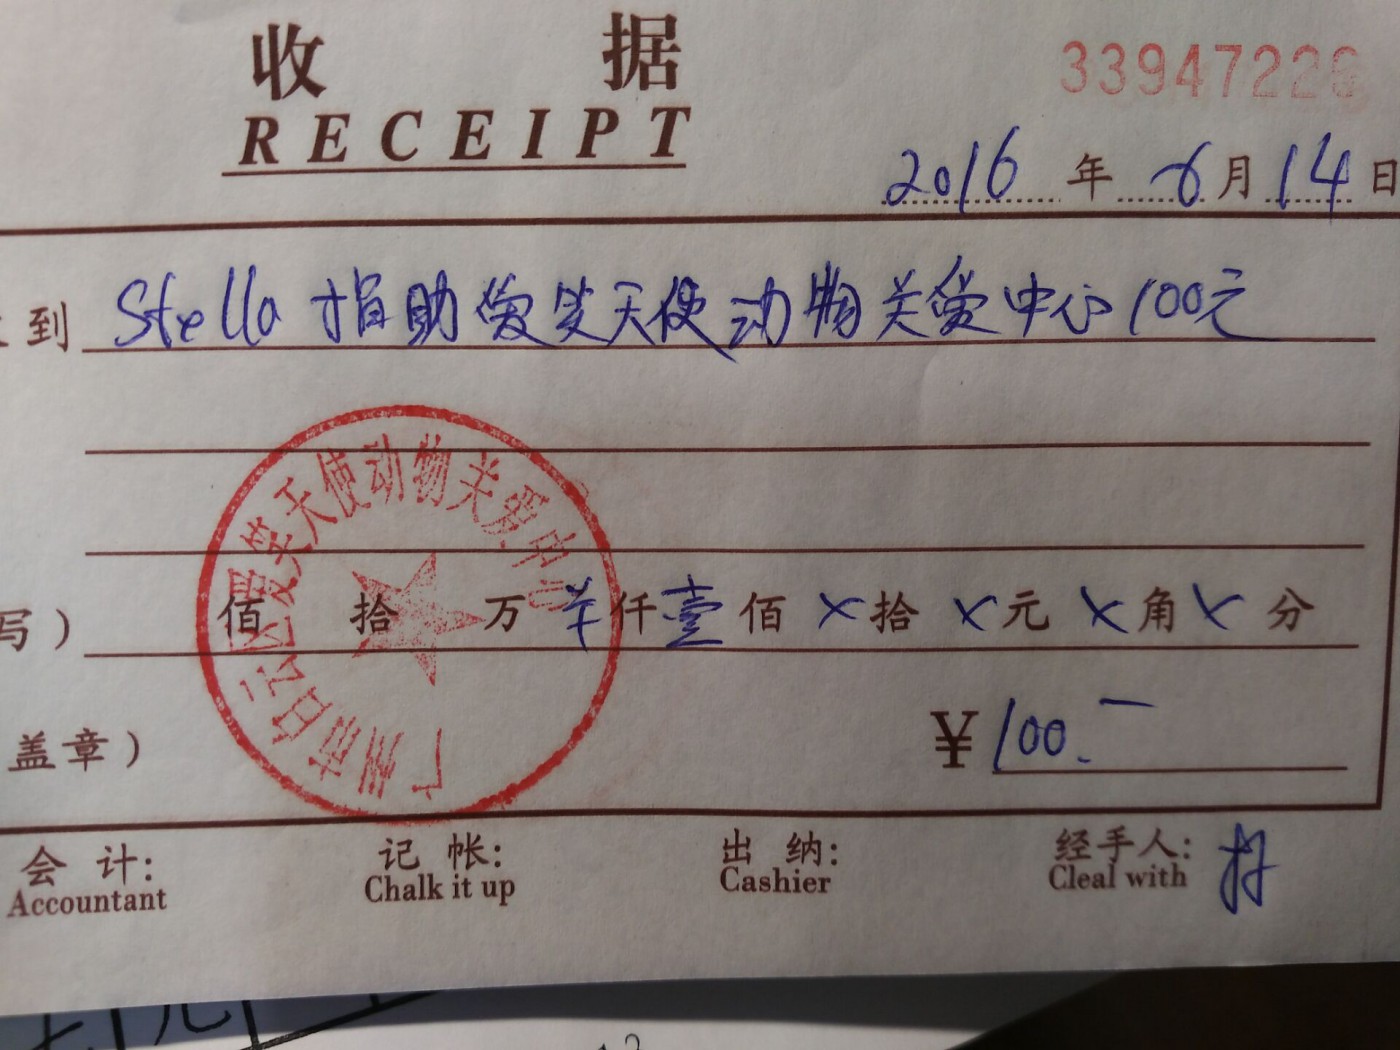 收 据
RECEIPT
3394722
2016 年 6 月 14 日
到 Stella 捐助爱笑天使动物关爱中心100元
广州市白云区爱笑天使动物关爱中心
写） 佰 拾 万 羊 仟 壹 佰 × 拾 × 元 × 角 × 分
盖章） ¥ 100.—
会 计: 记 帐: 出 纳: 经手人:
Accountant Chalk it up Cashier Cleal with